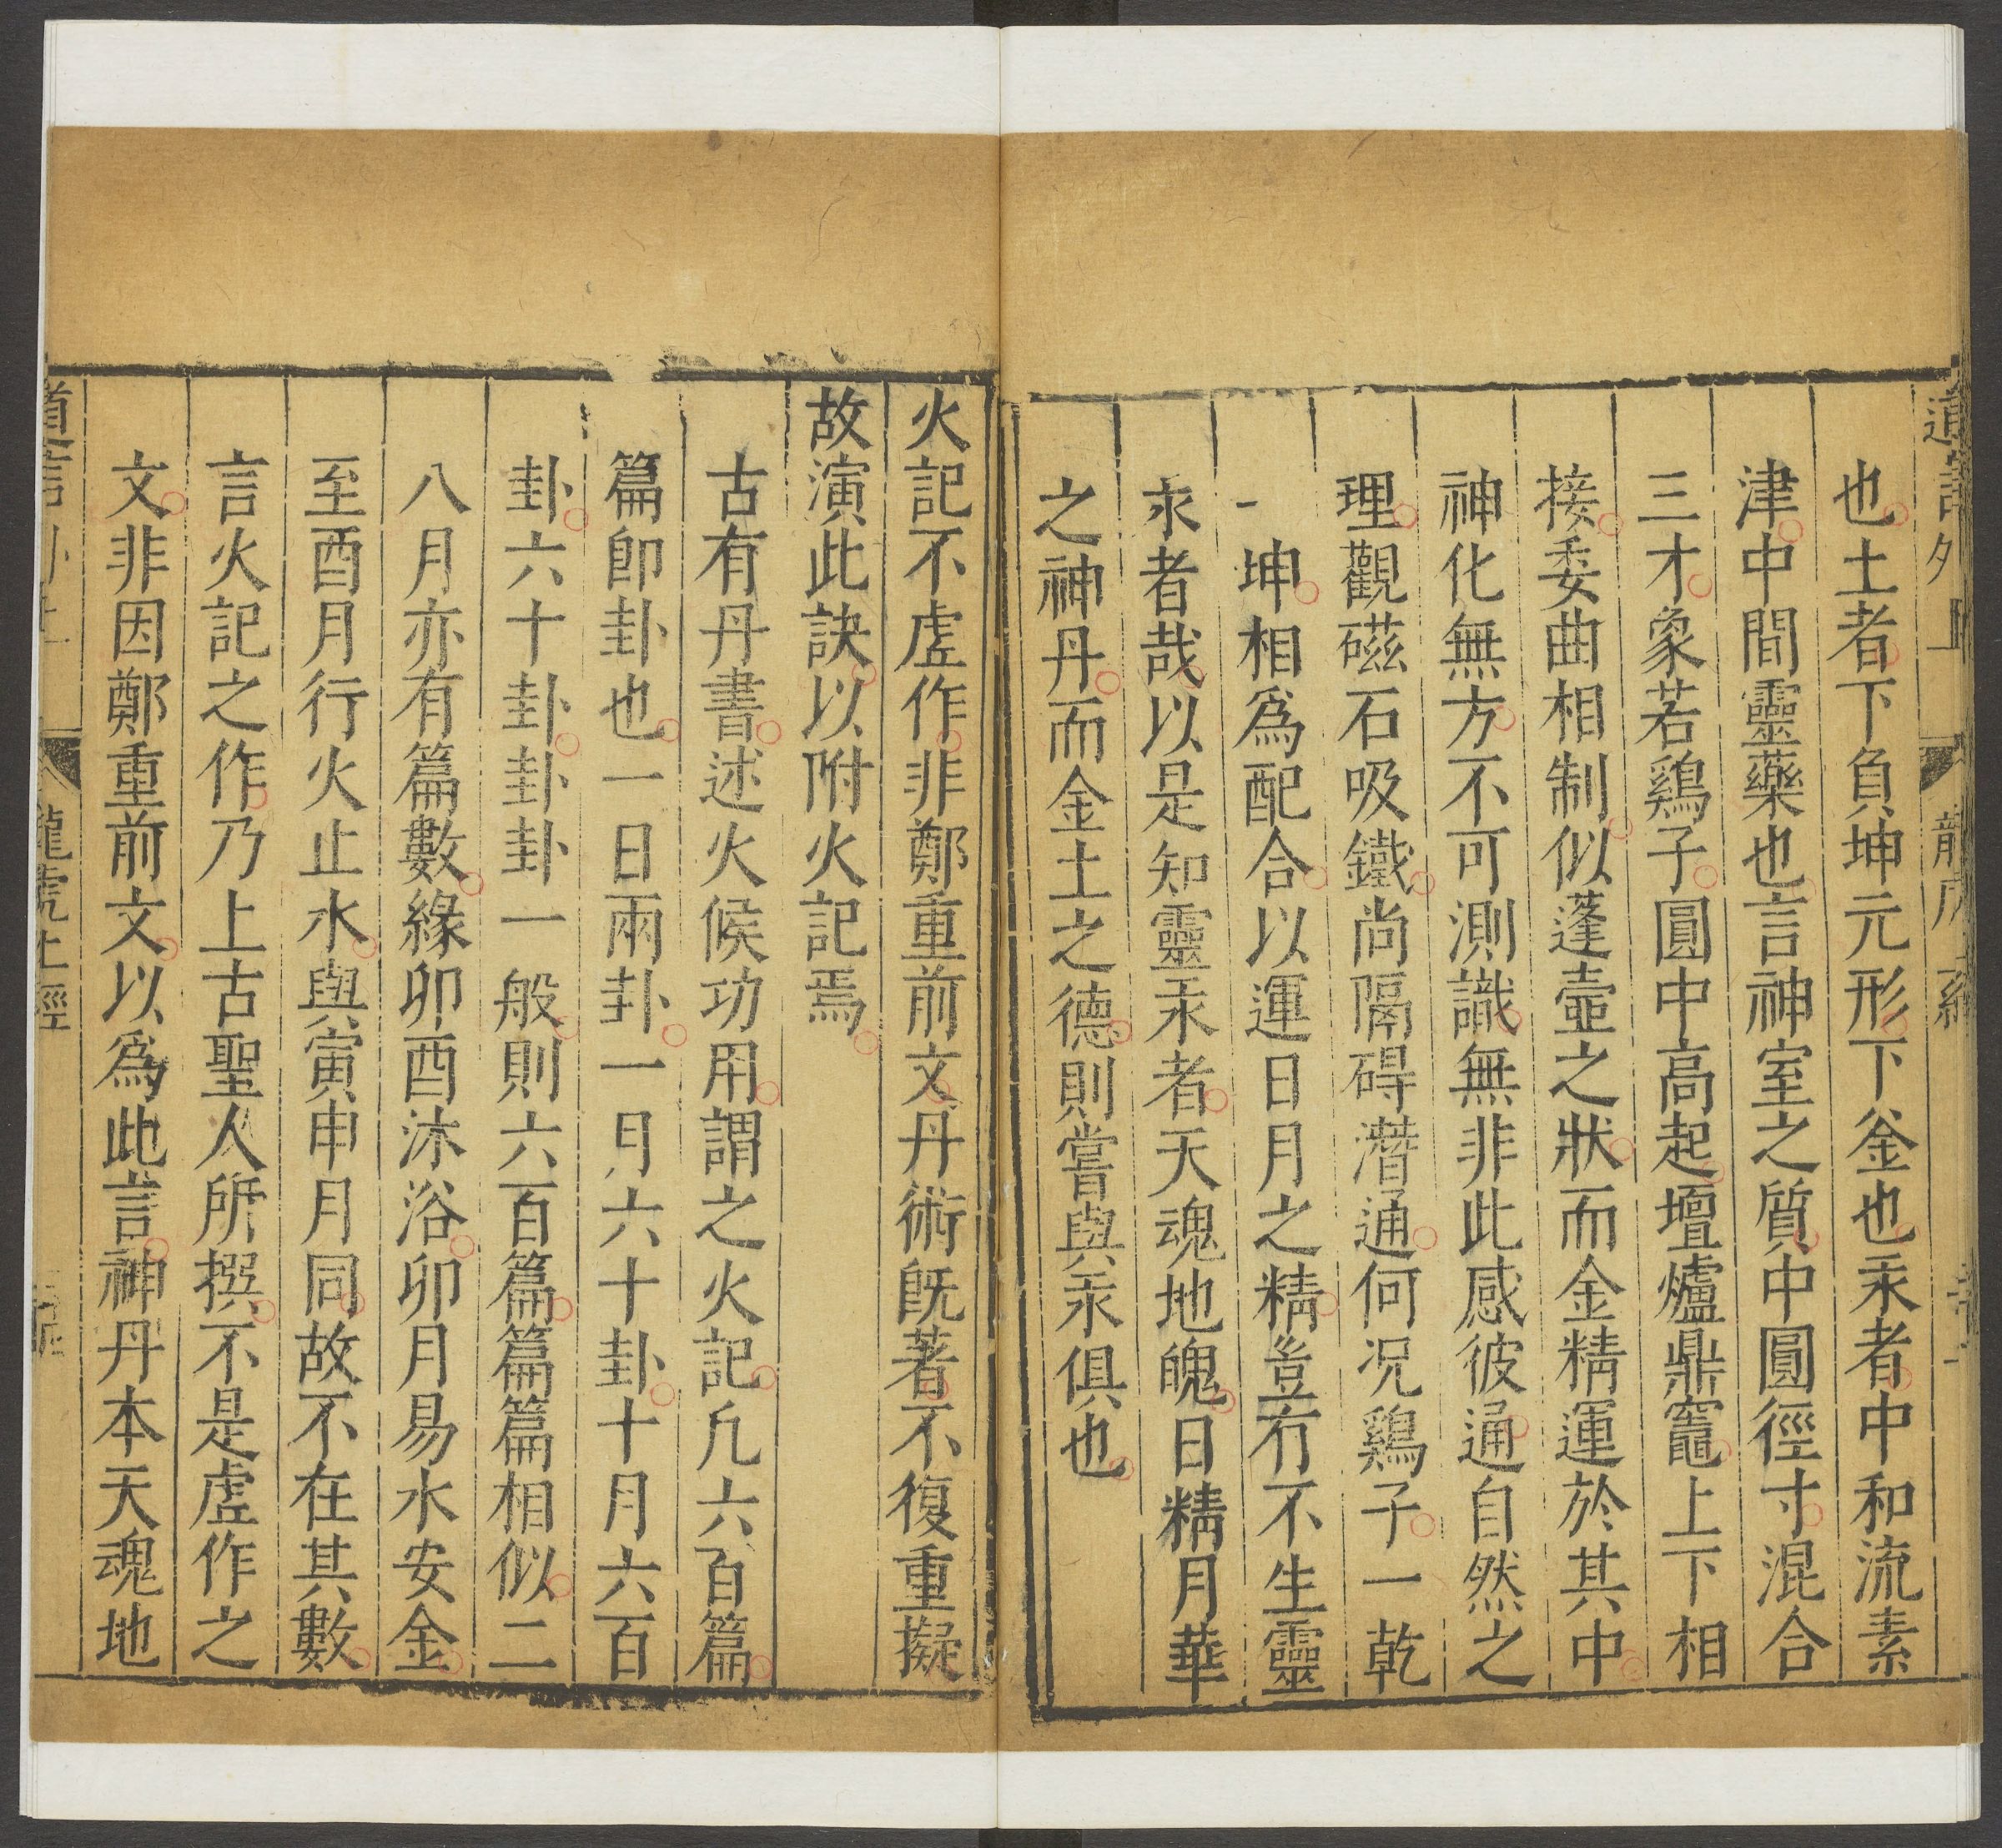 也土者下負坤元形下釜也汞者中和流素
津中間靈藥也言神室之質中圓徑寸混合
三才象若鷄子圓中高起壇爐鼎竈上下相
接委曲相制似蓬壺之狀而金精運於其中
神化無方不可測識無非此感彼通自然之
理觀磁石吸鐵尚隔碍潛通何况鷄子一乾
一坤相爲配合以運日月之精豈有不生靈
汞者哉以是知靈汞者天魂地魄日精月華
之神丹而金土之德則嘗與汞俱也
火記不虛作非鄭重前文丹術旣著不復重擬
故演此訣以附火記焉
古有丹書述火候功用謂之火記凡六百篇
篇卽卦也一日兩卦一月六十卦十月六百
卦六十卦卦卦一般則六百篇篇篇相似二
八月亦有篇數緣卯酉沐浴卯月易水安金
至酉月行火止水與寅申月同故不在其數
言火記之作乃上古聖人所撰不是虛作之
文非因鄭重前文以爲此言神丹本天魂地
龍虎上經